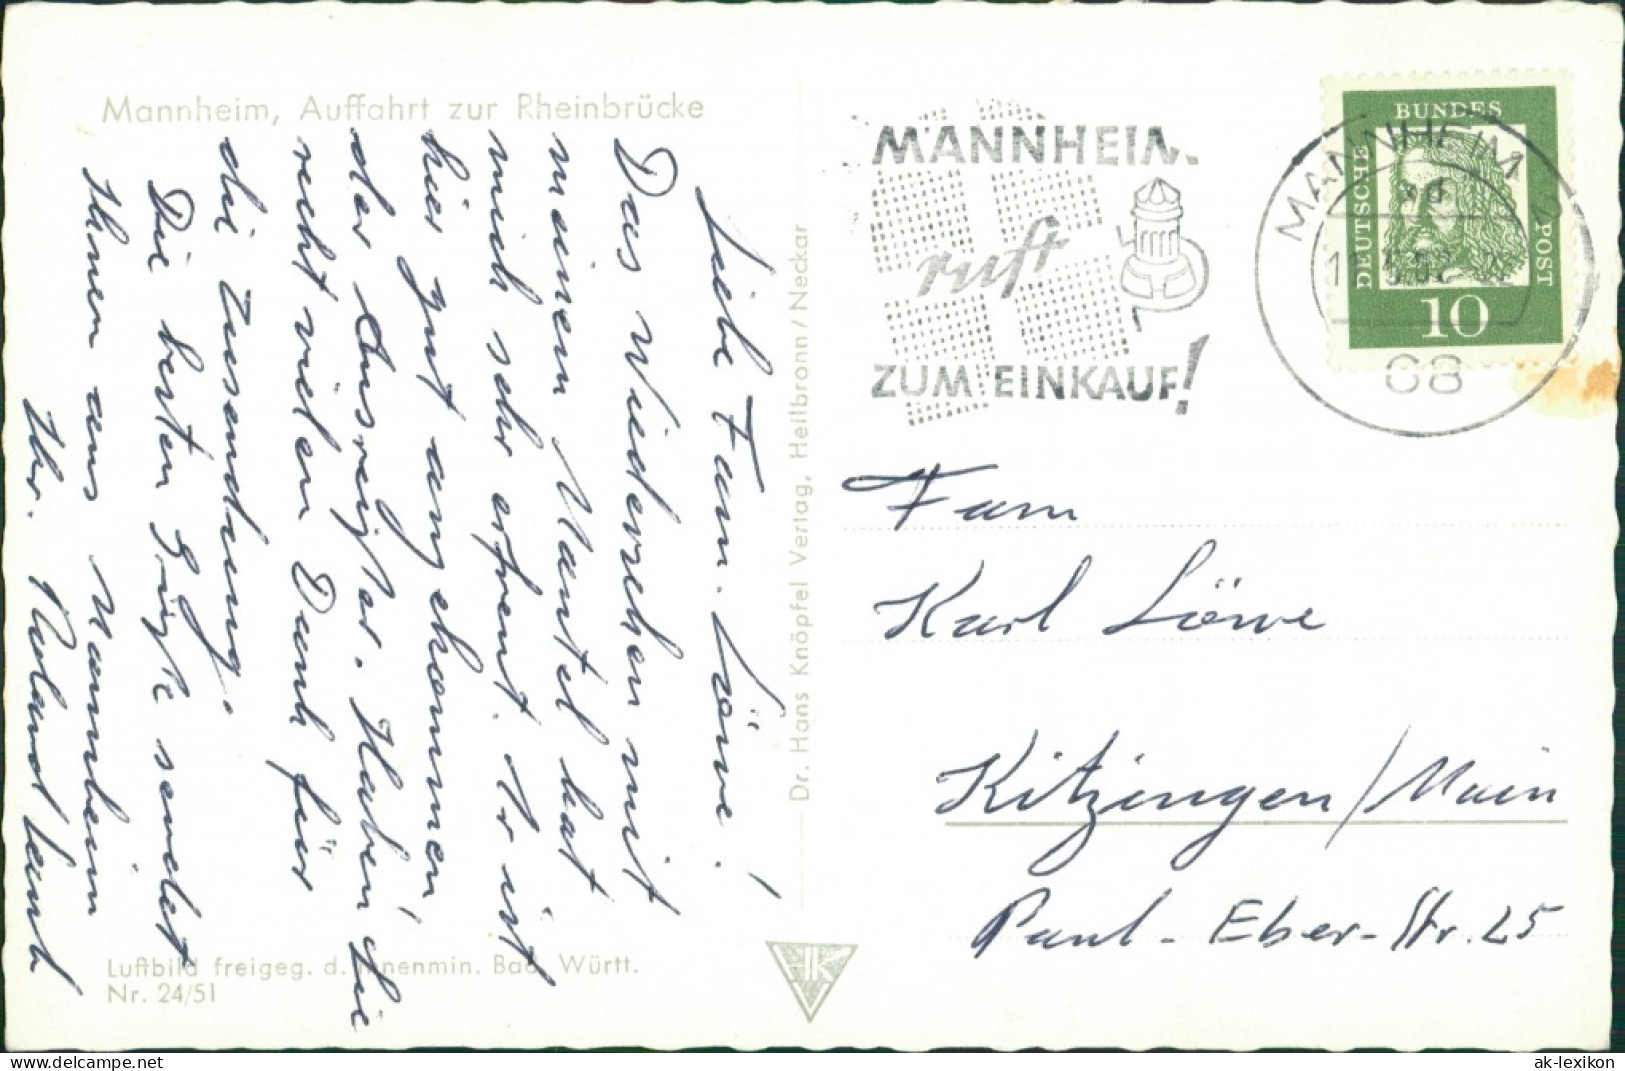 Mannheim, Auffahrt zur Rheinbrücke
Liebe Fam. Löwe!
Das Wiedersehen mit
meinem Mantel hat
mich sehr erfreut. Er ist
hier gut angekommen,
der Ausreißer. Haben Sie
recht vielen Dank für
die Zusendung.
Die besten Grüße sendet
Ihnen aus Mannheim
Ihr Roland
Luftbild freigeg. d. Innenmin. Bad. Württ.
Nr. 24/51
Dr. Hans Knöpfel Verlag, Heilbronn/Neckar
HK
MANNHEIM
ruft
ZUM EINKAUF!
MANNHEIM 2
68
BUNDES
DEUTSCHE
POST
10
Fam
Karl Löwe
Kitzingen/Main
Paul-Eber-Str. 25
www.delcampe.net
ak-lexikon